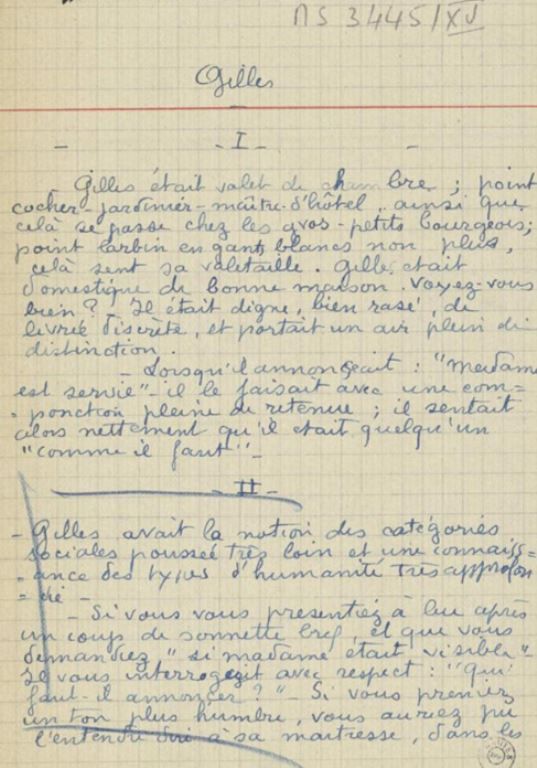 MS 3445/XV
Gilles
- I -
- Gilles était valet de chambre ; point
cocher - jardinier - maître-d'hôtel, ainsi que
celà se passe chez les gros-petits bourgeois;
point larbin en gants blancs non plus,
celà sent sa valetaille. Gilles était
domestique de bonne maison. Voyez-vous
bien ? - Il était digne, bien rasé, de
livrée discrète, et portait un air plein de
distinction.
- Lorsqu'il annonçait : "madame
est servie" - il le faisait avec une com=
=ponction pleine de retenue ; il sentait
alors nettement qu'il était quelqu'un
"comme il faut" -
- II -
- Gilles avait la notion des catégories
sociales poussée très loin et une connaiss=
=ance des types d'humanité très approfon
=die -
- Si vous vous présentiez à lui après
un coup de sonnette bref, et que vous
demandiez "si madame était visible" -
Il vous interrogeait avec respect : "Qui
faut-il annoncer ?" - Si vous preniez
un ton plus humble, vous auriez pu
l'entendre dire à sa maîtresse, dans les